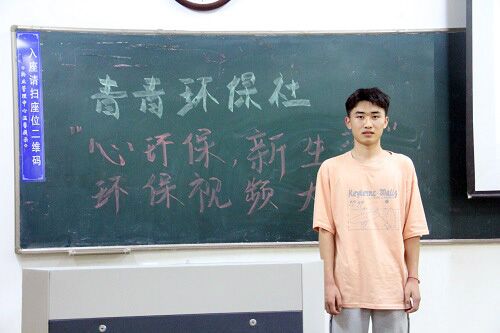 入座请扫座位二维码
青青环保社
"心环保,新生
环保视频大